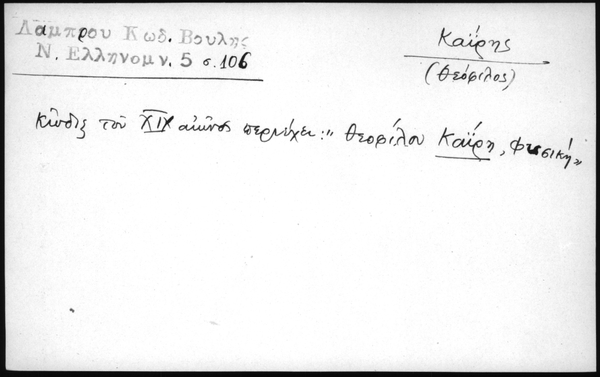 Λάμπρου Κωδ. Βουλης
Ν. Ελληνομν. 5 σ. 106
Καΐρης
(Θεόφιλος)
Κῶδιξ τοῦ XIX αἰῶνος περιέχει: " Θεοφίλου Καΐρη, Φυσική "